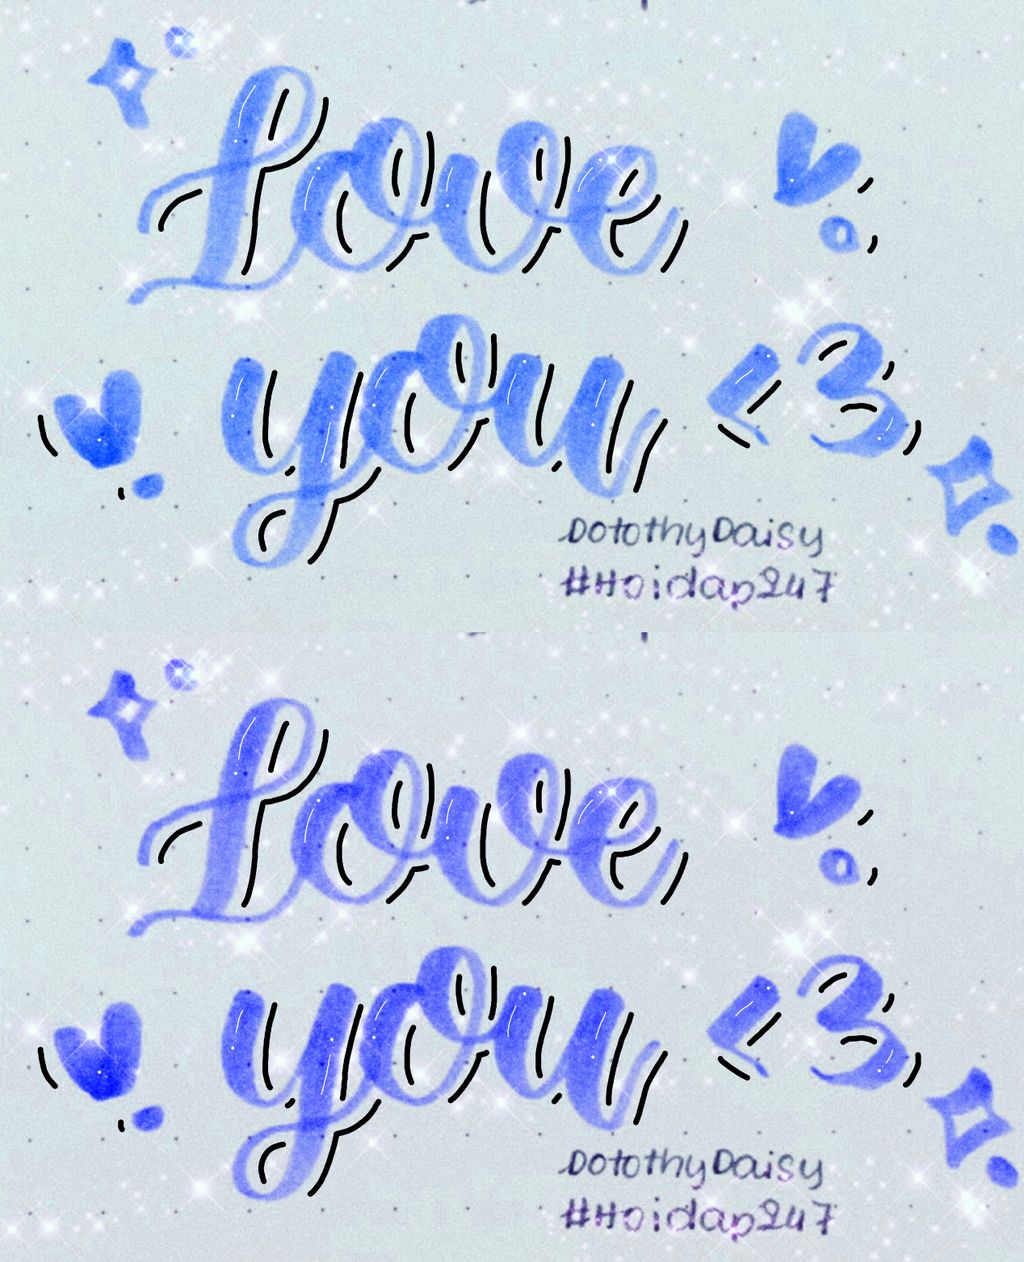 Love
you <3
DotothyDaisy
#Hoidap247
Love
you <3
DotothyDaisy
#Hoidap247